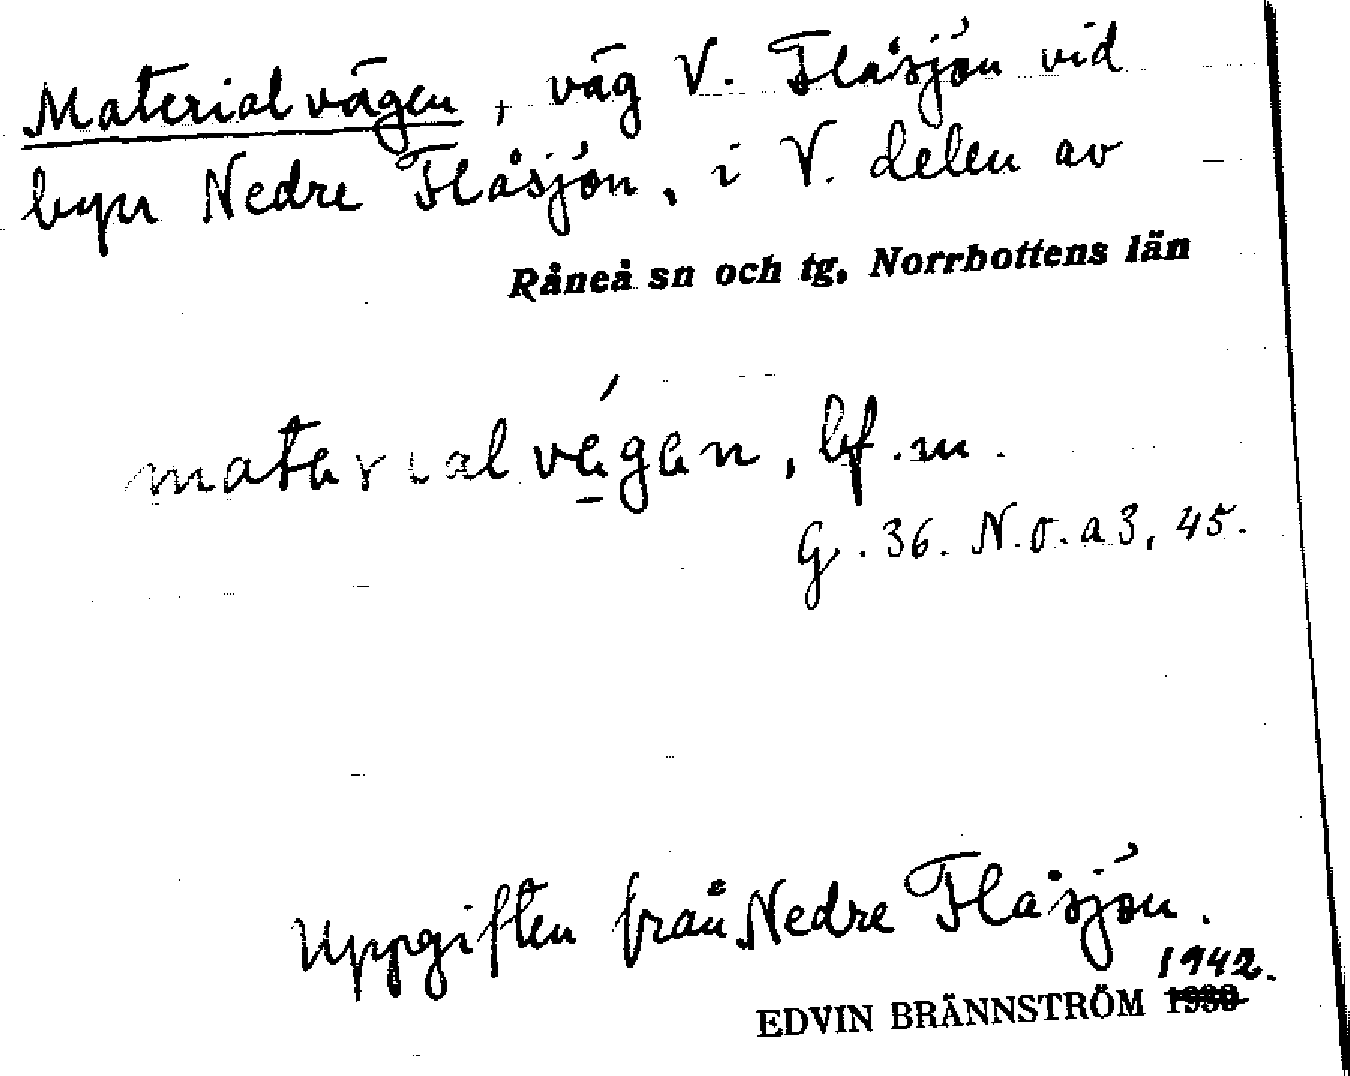 Materialvägen, väg V. Flåsjön vid
byn Nedre Flåsjön, i V. delen av
Råneå sn och tg, Norrbottens län
materialvé̱gen, bf. m.
G. 36. N. o. a 3, 45.
Uppgiften från Nedre Flåsjön.
1942.
EDVIN BRÄNNSTRÖM